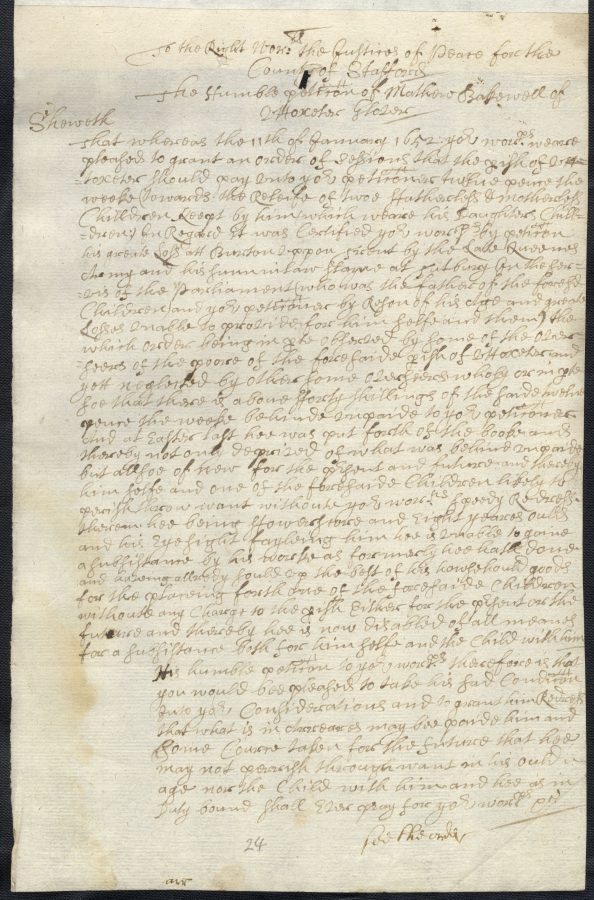 To the Right Worll the Justices of Peace for the
County of Stafford
The Humble petition of Mathew Bakewell of
Uttoxeter Glover
Sheweth
That whereas the 11th of January 1652 yor worpps weare
pleased to grant an order of sessions that the pish of Utt=
=toxeter should pay unto yor petitioner twelve pence the
weeke towards the Releife of twoe Fatherless & motherless
Chilldren Keept by him which weare his Daughters Chill=
=dren) In Regard It was Certified yor worpps by petition
his greate Loss att Burton uppon Trent by the Late Queenes
Army and his sunn in law slaine at Tutbury In the ser=
=vis of the Parliament (who was the father of the foresd
Children) and yor petitioner by Reson of his age and greate
Losses unable to provide for him selfe and them) the
which order being in pte observed by some of the over
seers of the poore of the foresaide pish of Uttoxeter and
yett neglected by other some overseers wholy or in pte
soe that there is above fforty shillings of the saide twelve
pence the weeke behinde unpaide to yor petitioner
And at Easter last hee was put forth of the booke and
thereby not only deprived of what was behind unpaide
but allsoe of new for the psent and future and thereby
him selfe and one of the foresaide Children likely to
perish throw want withoute yor worpps speedy Redresse
therein hee being ffowerscore and Eight yeares ould
and his Eyesight fayleing him hee is unable to gaine
a subsistance by his worke as formerly hee hath done
and haveing allredy sould up the best of his howsehould goods
for the placeing forth one of the foresaide Chilldren
withoute any Charge to the pish Either for the psent or the
future and thereby hee is now disabled of all meanes
for a subsistance both for him selfe and the Child with him
His humble petition to yor worpps therefore is that
you would bee pleased to take his sad Condition
Into yor Considerations and to grant him Redress
that what is in Arreares may bee paide him and
Some Course taken for the future that hee
may not perrish through want in his ould
age nor the Child with him and hee as in
Duty bound shall Ever pray for yor worpps &c
24
see the order